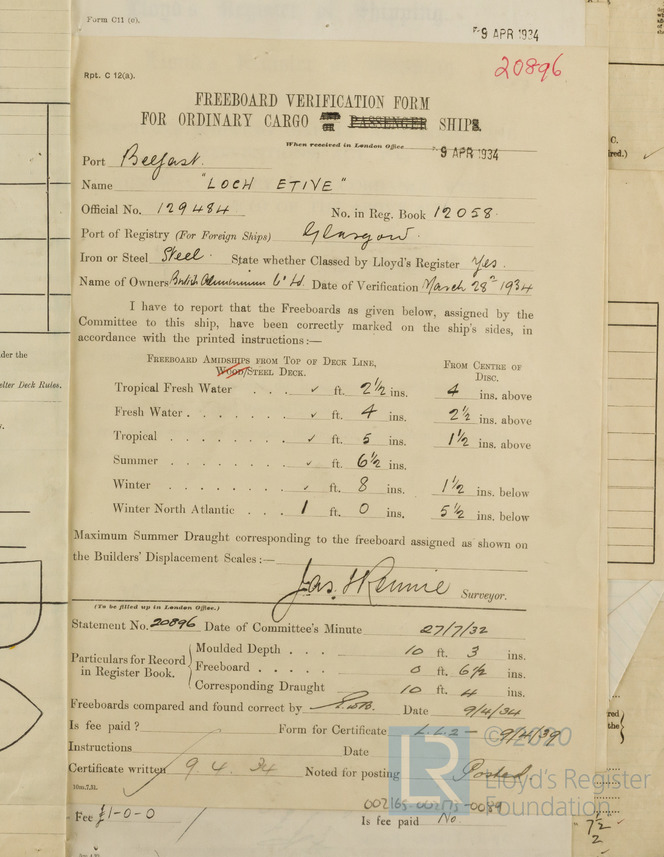 Form C11 (c).
9 APR 1934
20896
Rpt. C 12(a).
FREEBOARD VERIFICATION FORM
FOR ORDINARY CARGO OR PASSENGER SHIPS.
When received in London Office 9 APR 1934
Port Belfast.
Name "LOCH ETIVE"
Official No. 129484 No. in Reg. Book 12058.
Port of Registry (For Foreign Ships) Glasgow.
Iron or Steel Steel. State whether Classed by Lloyd's Register Yes.
Name of Owners British Aluminium Co Ld. Date of Verification March 28th 1934
I have to report that the Freeboards as given below, assigned by the
Committee to this ship, have been correctly marked on the ship's sides, in
accordance with the printed instructions:—
FREEBOARD AMIDSHIPS FROM TOP OF DECK LINE, FROM CENTRE OF
WOOD/STEEL DECK. DISC.
Tropical Fresh Water . . . ✓ ft. 2½ ins. 4 ins. above
Fresh Water . . . . . . . ✓ ft. 4 ins. 2½ ins. above
Tropical . . . . . . . . ✓ ft. 5 ins. 1½ ins. above
Summer . . . . . . . . ✓ ft. 6½ ins.
Winter . . . . . . . . ✓ ft. 8 ins. 1½ ins. below
Winter North Atlantic . . . 1 ft. 0 ins. 5½ ins. below
Maximum Summer Draught corresponding to the freeboard assigned as shown on
the Builders' Displacement Scales:—
Jas. H Rennie Surveyor.
(To be filled up in London Office.)
Statement No. 20896 Date of Committee's Minute 27/7/32
Particulars for Record in Register Book.
Moulded Depth . . . 10 ft. 3 ins.
Freeboard . . . . . 0 ft. 6½ ins.
Corresponding Draught 10 ft. 4 ins.
Freeboards compared and found correct by Date 9/4/34
Is fee paid? Form for Certificate L.L.2 — 9/4/39
Instructions Date
Certificate written 9. 4. 34 Noted for posting Posted
10m,7,31.
Fee £1-0-0
002165-002175-0089
Is fee paid No
©2020
LR
Lloyd's Register
Foundation
der the
elter Deck Rules.
7½
2